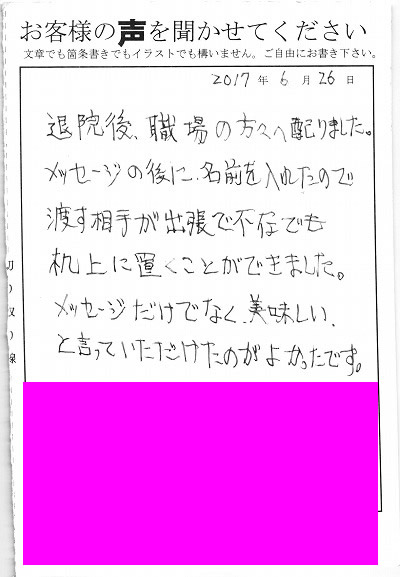 お客様の声を聞かせてください
文章でも箇条書きでもイラストでも構いません。ご自由にお書き下さい。
2017年6月26日
退院後、職場の方々へ配りました。
メッセージの後に、名前を入れたので
渡す相手が出張で不在でも
机上に置くことができました。
メッセージだけでなく、美味しい、
と言っていただけたのがよかったです。
切り取り線